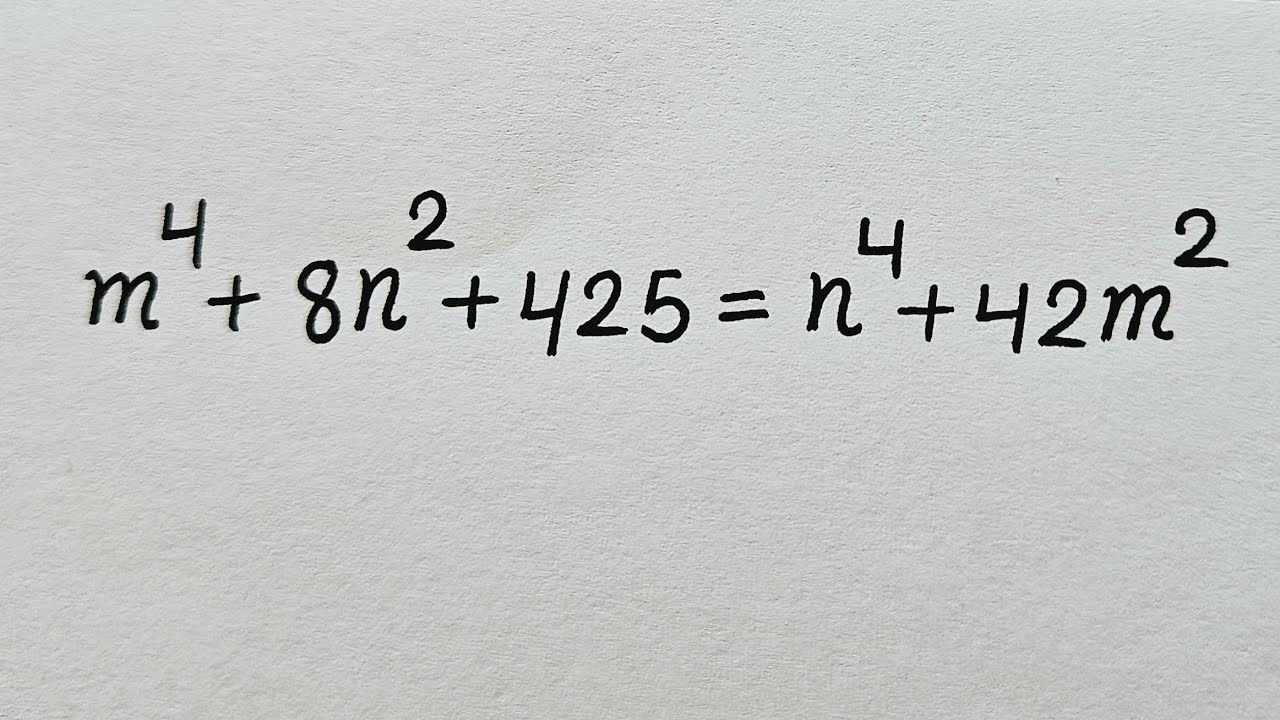 m⁴ + 8n² + 425 = n⁴ + 42m²